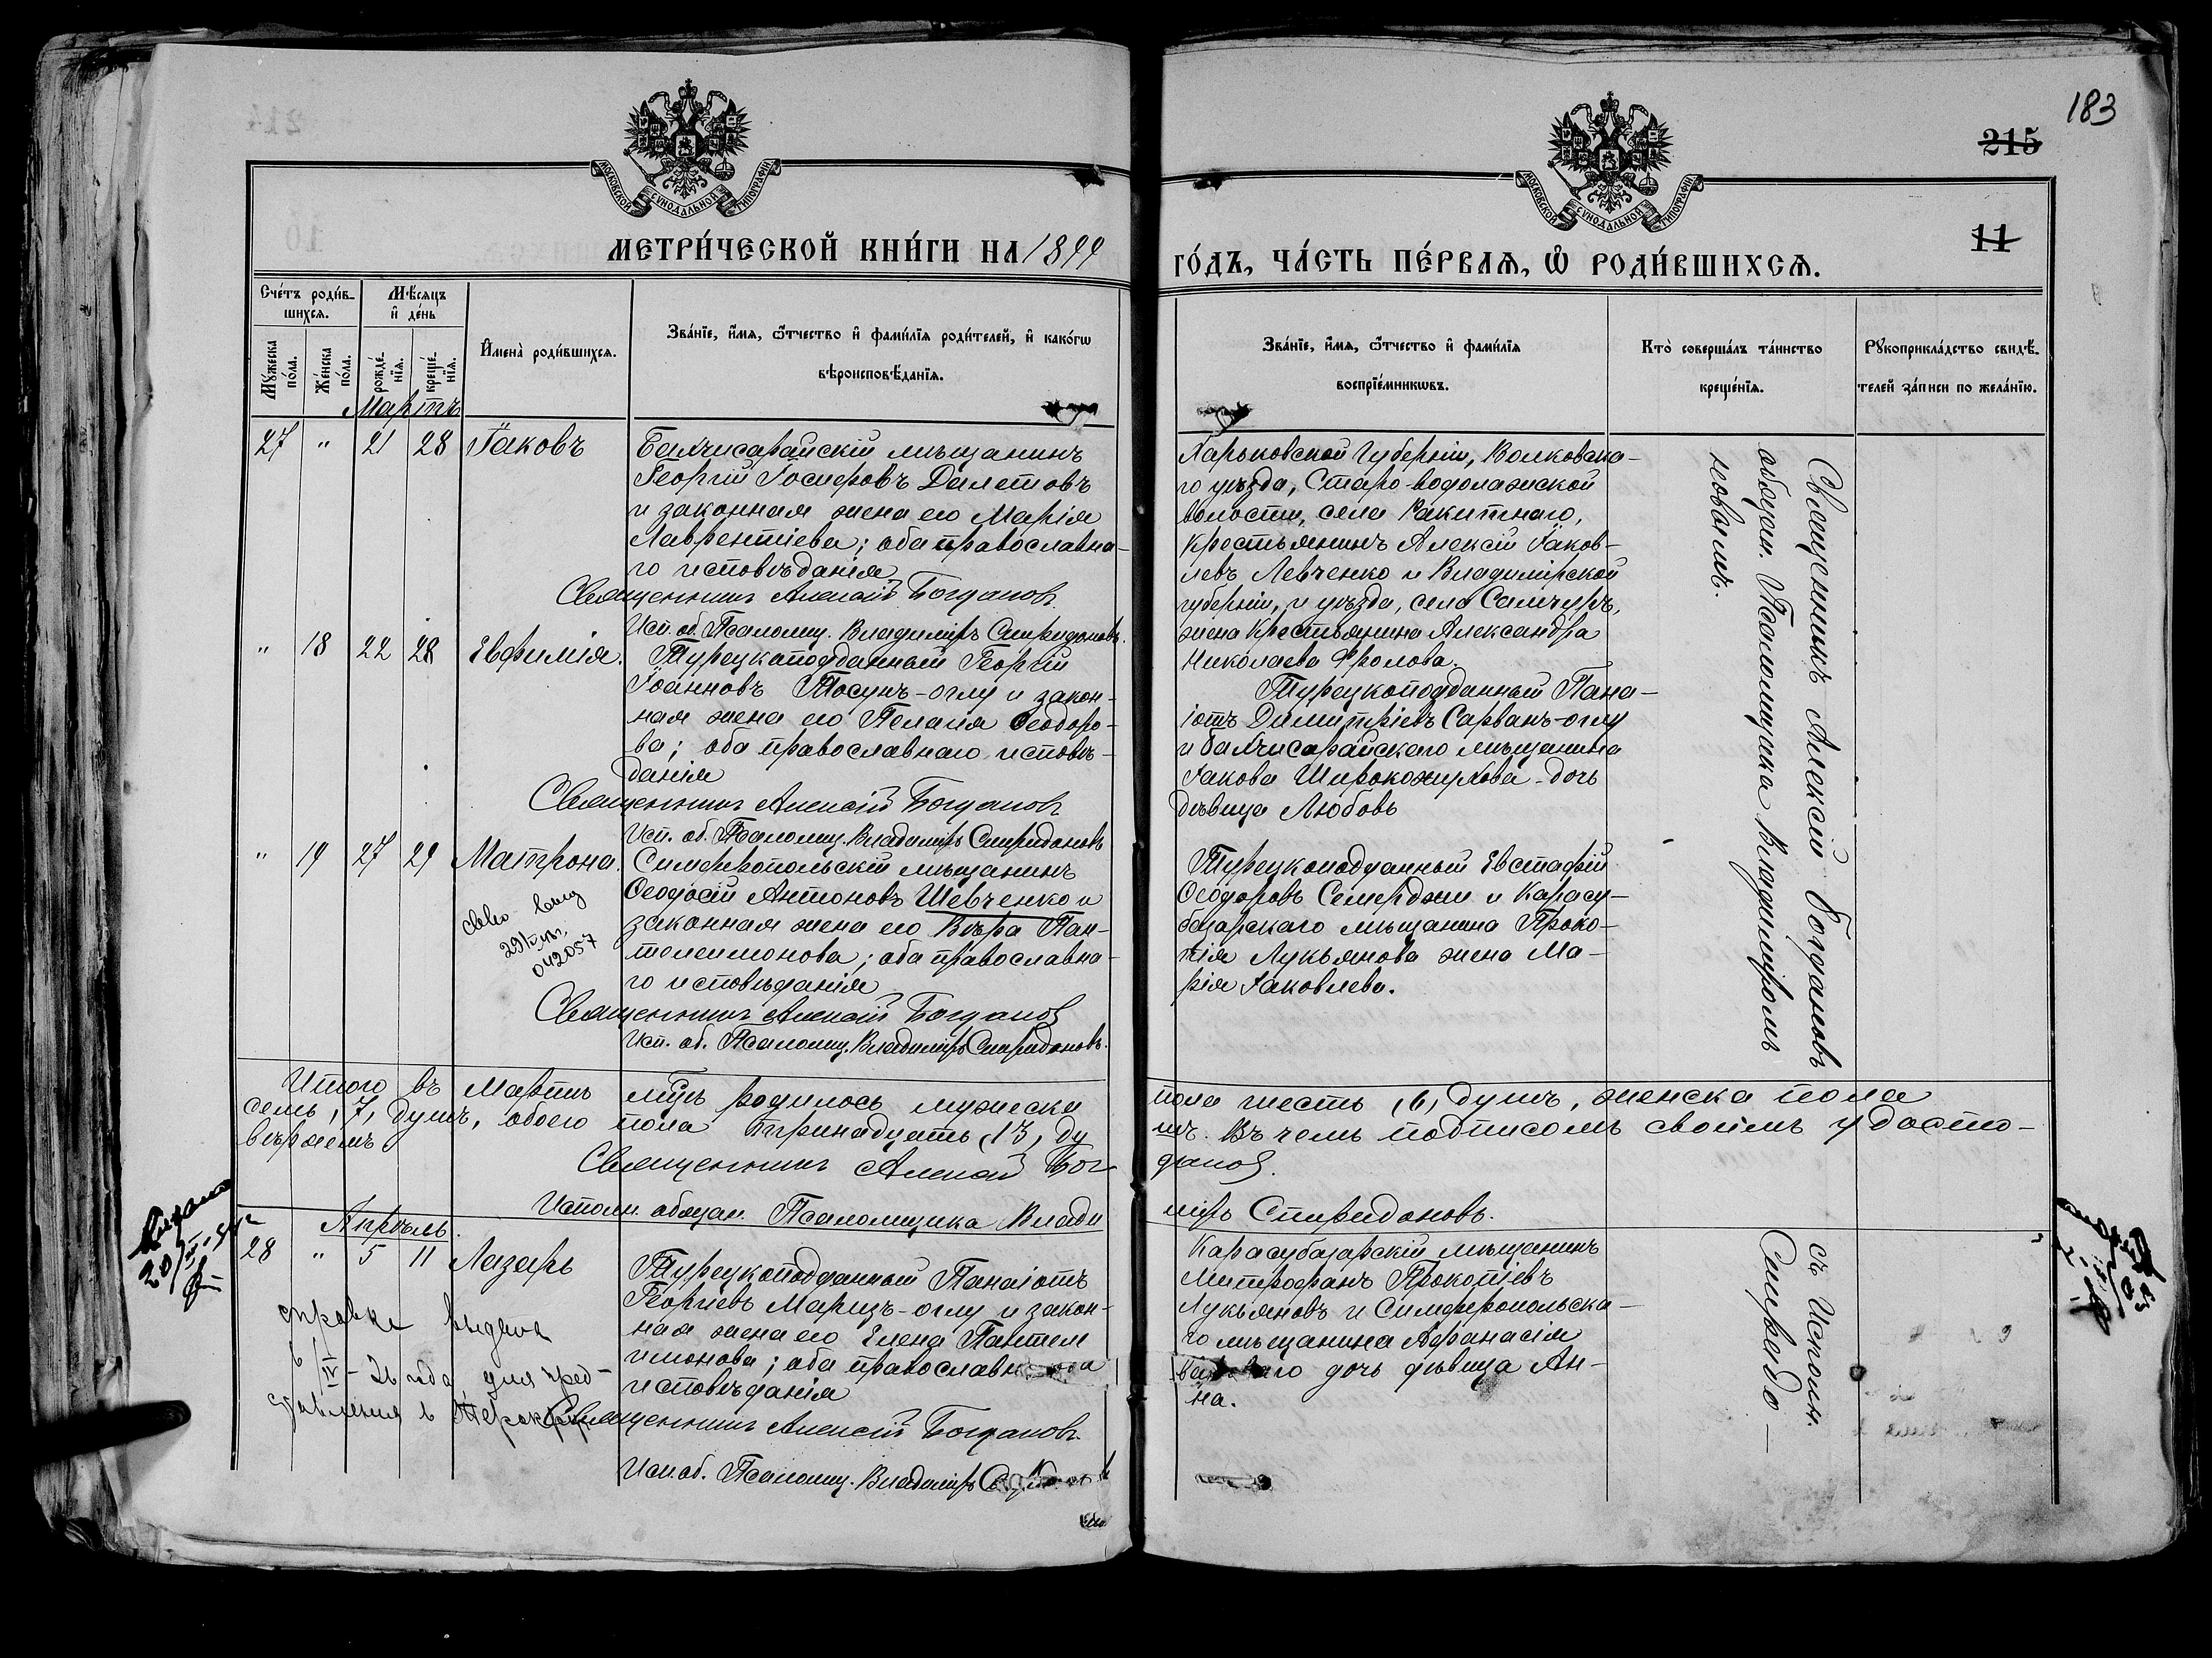 183
215
11
МОСКОВСКОЙ СѴНОДАЛЬНОЙ ТИПОГРАФІИ
МОСКОВСКОЙ СѴНОДАЛЬНОЙ ТИПОГРАФІИ
МЕТРИ́ЧЕСКОЙ КНИ́ГИ НА 1899
ГО́ДЪ, ЧА́СТЬ ПЕ́РВАѦ, Ѽ РОДИ́ВШИХСѦ.
Сче́тъ роди́в-
шихсѧ.
Мѣ́сѧцъ
и҆ де́нь
Мꙋ́жеска по́ла.
Же́нска по́ла.
рожде́-нїѧ.
креще́-нїѧ.
И҆мена̀ роди́вшихсѧ.
Зва́нїе, и҆́мѧ, ѻ҆́тчество и҆ фами́лїѧ роди́телей, и҆ како́гѡ
вѣроисповѣ́данїѧ.
Зва́нїе, и҆́мѧ, ѻ҆́тчество и҆ фами́лїѧ
воспрїе́мникѡвъ.
Кто̀ соверша́лъ та́инство
креще́нїѧ.
Рꙋкоприкла́дство свидѣ́-
телей за́писи по жела́нїю.
Мартъ
27 " 21 28 Іаковъ
Бахчисарайскій мѣщанинъ
Георгій Іосифовъ Далетовъ
и законная жена его Марія
Лаврентіева; оба православна-
го исповѣданія
Священникъ Алексій Богдановъ.
Исп. об. Псаломщ. Владиміръ Спиридоновъ.
Харьковской Губерніи, Волковска-
го уѣзда, Старо-водолажской
волости, села Ракитнаго,
крестьянинъ Алексій Іаков-
левъ Левченко и Владимірской
губерніи, и уѣзда, села
жена Крестьянина Александра
Николаева Фролова.
" 18 22 28 Евфимія.
Турецкоподданный Георгій
Іоанновъ Тосунъ-оглу и закон-
ная жена его Пелагія Ѳеодоро-
ва; оба православнаго исповѣ-
данія
Священникъ Алексій Богдановъ
Исп. об. Псаломщ. Владиміръ Спиридоновъ
Турецкоподданный Пана-
іотъ Димитріевъ Сарванъ-оглу
и бахчисарайскаго мѣщанина
Іакова Широкожухова дочь
дѣвица Любовь
" 19 27 29 Матрона.
Симферопольскій мѣщанинъ
Ѳеодосій Антоновъ Шевченко и
законная жена его Вѣра Пан-
телеимонова; оба православна-
го исповѣданія
Священникъ Алексій Богдановъ
Исп. об. Псаломщ. Владиміръ Спиридоновъ.
042057
Турецкоподданный Евстафій
Ѳеодоровъ Семерджи и Карасу-
базарскаго мѣщанина Проко-
пія Лукьянова жена Ма-
рія Іаковлева.
Священникъ Алексій Богдановъ
обязан. Псаломщика Владиміромъ
новымъ.
Итого въ Мартѣ мѣсъ родилось мужеска пола шесть (6) душъ, женска пола
семь (7) душъ, обоего пола тринадцать (13) душъ. Въ чемъ подписомъ своимъ удосто-
вѣряемъ
Священникъ Алексій Богдановъ.
Исполн. обязан. Псаломщика Владиміръ Спиридоновъ.
Апрѣль.
28 " 5 11 Лазарь
Турецкоподданный Панаіотъ
Георгіевъ Марцъ-оглу и закон-
ная жена его Елена Пантеле
имонова; оба православн
исповѣданія
Священникъ Алексій Богдановъ.
Исп. об. Псаломщ. Владиміръ
Карасубазарскій мѣщанинъ
Митрофанъ Прокопіевъ
Лукьяновъ и Симферопольска-
го мѣщанина Аѳанасія
дочь дѣвица Ан-
на.
съ Исполн.
Спиридо-
справка выдана
6/IV - 26 года для пред-
ставления в